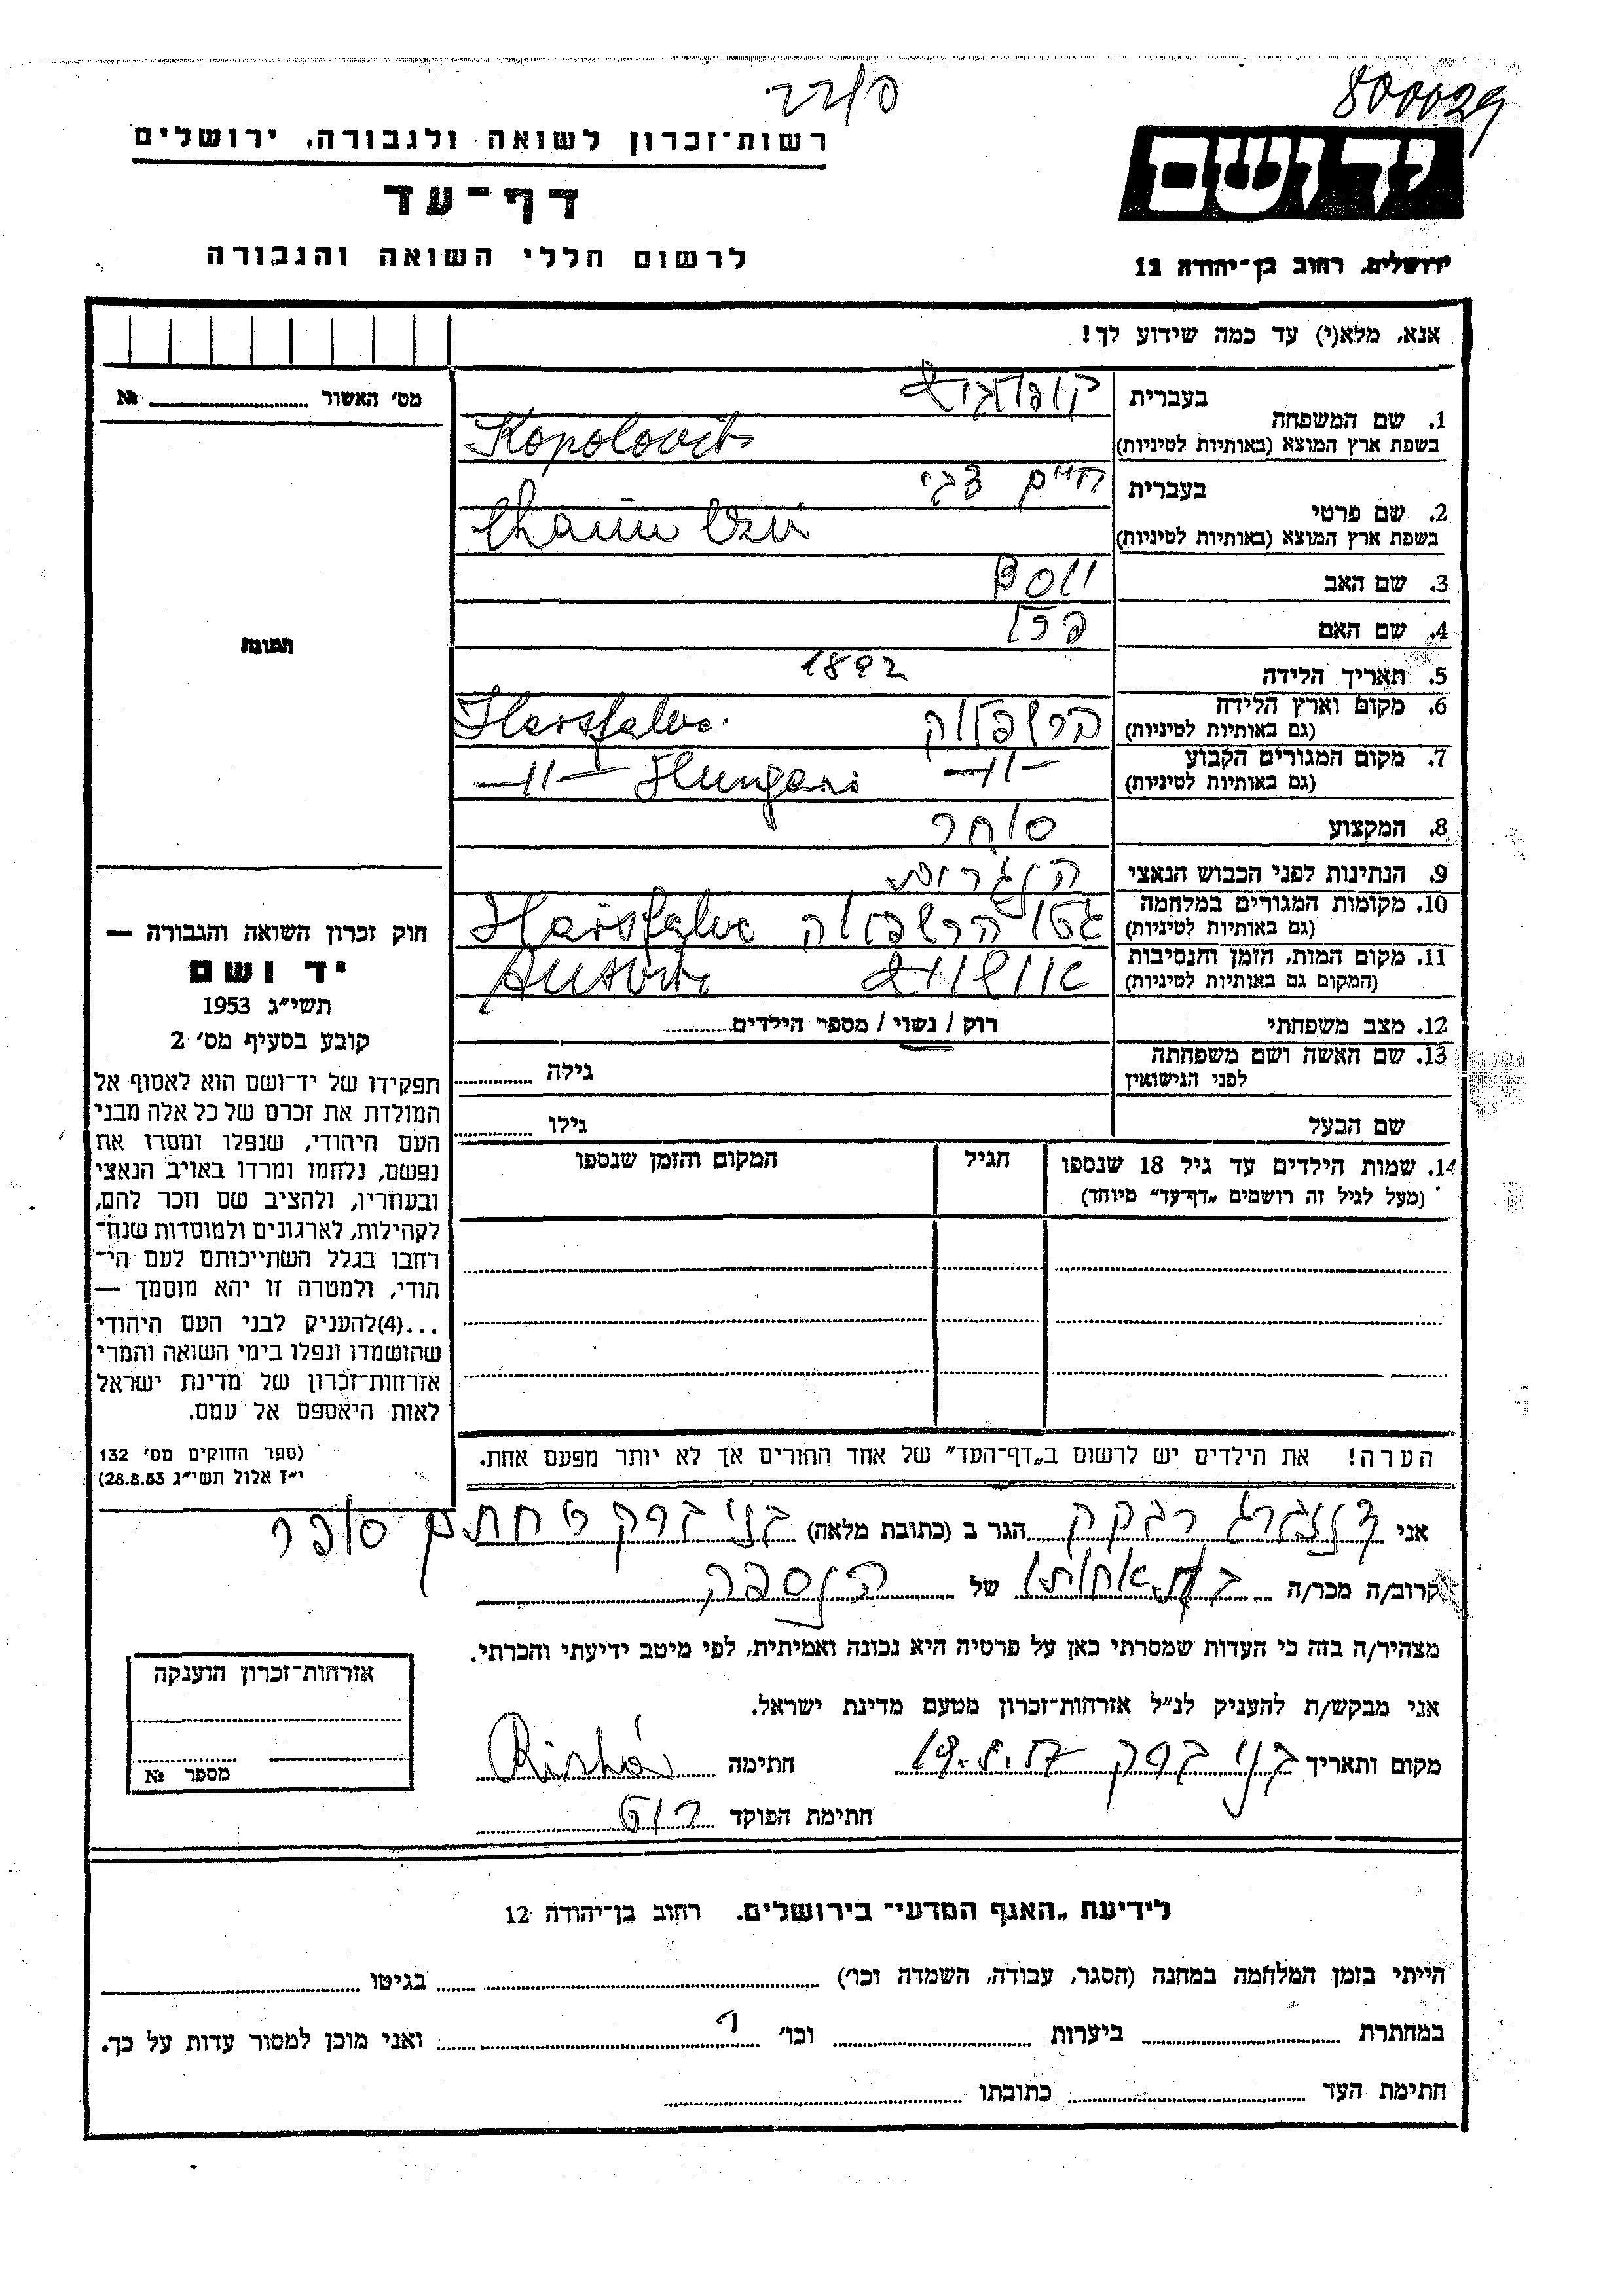 22/פ
800029
רשות־זכרון לשואה ולגבורה, ירושלים
דף־עד
לרשום חללי השואה והגבורה
יד ושם
ירושלים, רחוב בן־יהודה 12
אנא, מלא(י) עד כמה שידוע לך!
מס׳ האשור № 
1. שם המשפחה
בעברית קופולוביט
בשפת ארץ המוצא (באותיות לטיניות) Kopolovits
2. שם פרטי
בעברית חיים צבי
בשפת ארץ המוצא (באותיות לטיניות) Chaim Czvi
3. שם האב יוסף
4. שם האם
5. תאריך הלידה 1892
6. מקום וארץ הלידה הרשפלוה Harsfalve.
(גם באותיות לטיניות)
7. מקום המגורים הקבוע —״— Hungari —״—
(גם באותיות לטיניות)
8. המקצוע סוחר
9. הנתינות לפני הכבוש הנאצי הונגרית
10. מקומות המגורים במלחמה גטו הרשפולוה Harsfalve
(גם באותיות לטיניות)
11. מקום המות, הזמן והנסיבות אוושוויט
(המקום גם באותיות לטיניות)
12. מצב משפחתי רווק / נשוי / מספר הילדים
13. שם האשה ושם משפחתה
לפני הנישואין
גילה
שם הבעל גילו
14. שמות הילדים עד גיל 18 שנספו הגיל המקום והזמן שנספו
(מעל לגיל זה רושמים „דף־עד״ מיוחד)
הערה! את הילדים יש לרשום ב„דף־העד״ של אחד ההורים אך לא יותר מפעם אחת.
תמונה
חוק זכרון השואה והגבורה —
יד ושם
תשי״ג 1953
קובע בסעיף מס׳ 2
תפקידו של יד־ושם הוא לאסוף אל
המולדת את זכרם של כל אלה מבני
העם היהודי, שנפלו ומסרו את
נפשם, נלחמו ומרדו באויב הנאצי
ובעוזריו, ולהציב שם וזכר להם,
לקהילות, לארגונים ולמוסדות שנח־
רבו בגלל השתייכותם לעם הי־
הודי, ולמטרה זו יהא מוסמך —
...(4)להעניק לבני העם היהודי
שהושמדו ונפלו בימי השואה והמרי
אזרחות־זכרון של מדינת ישראל
לאות היאספם אל עמם.
(ספר החוקים מס׳ 132
י״ז אלול תשי״ג 28.8.53)
אני רבקה הגר ב (כתובת מלאה) בני ברק חתם סופר
קרוב/ה מכר/ה בת אחותו של הנספה
מצהיר/ה בזה כי העדות שמסרתי כאן על פרטיה היא נכונה ואמיתית, לפי מיטב ידיעתי והכרתי.
אני מבקש/ת להעניק לנ״ל אזרחות־זכרון מטעם מדינת ישראל.
מקום ותאריך בני ברק חתימה
חתימת הפוקד רוט
אזרחות־זכרון הוענקה
מספר №
לידיעת „האגף המדעי״ בירושלים. רחוב בן־יהודה 12
הייתי בזמן המלחמה במחנה (הסגר, עבודה, השמדה וכו׳) בגיטו
במחתרת ביערות וכו׳ ואני מוכן למסור עדות על כך.
חתימת העד כתובתו